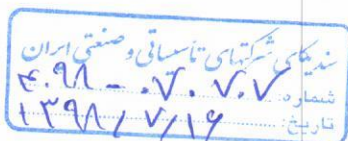 سندیکای شرکتهای تأسیساتی و صنعتی ایران
شماره: ۴۰۹۸-۰۷۰۷۰۷
تاریخ: ۱۳۹۸/۷/۱۶